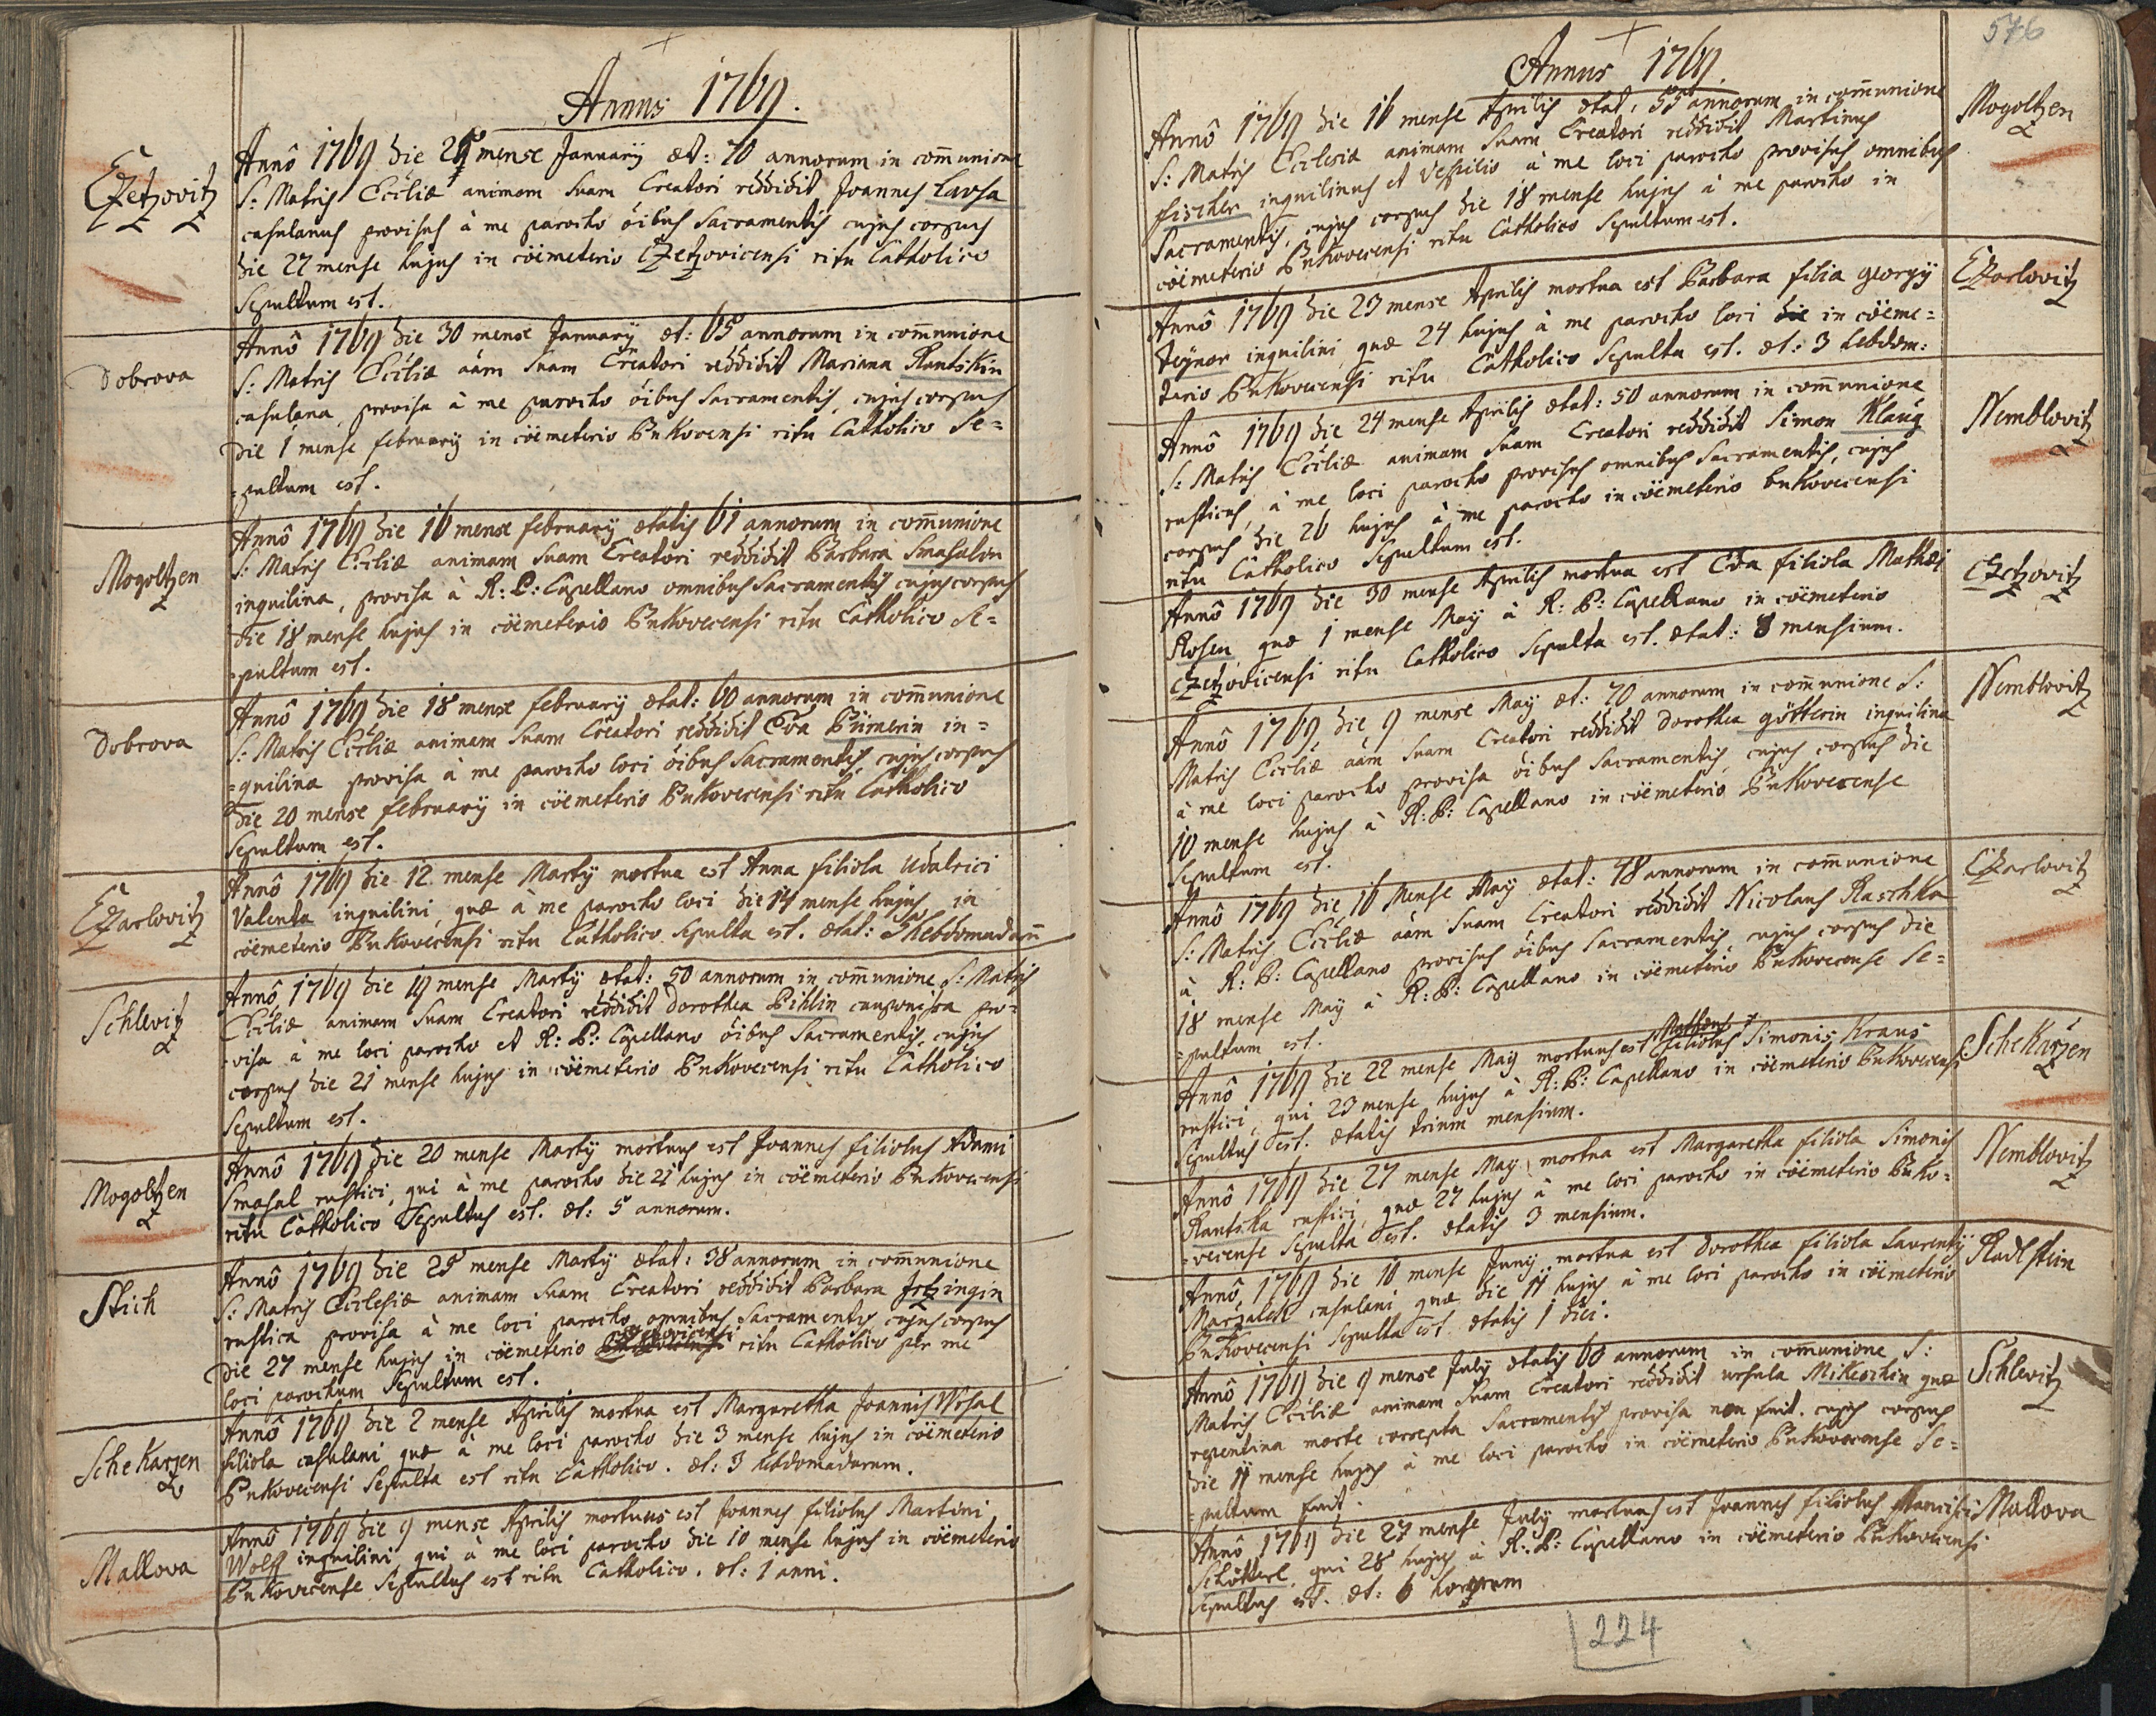 Annus 1769.
Czetzovitz
Annô 1769 die 25 mense Januarÿ æt: 70 annorum in com̄unione
S: Matris Eccliæ animam suam Creatori reddidit Joannes Lavsa
casulanus provisus à me parocho õibus Sacramentis cujus corpus
die 27 mense hujus in cöemeterio Czetzovicensi ritu Catholico
Sepultum est.
Dobrova
Annô 1769 die 30 mense Januarÿ æt: 65 annorum in com̄unione
S: Matris Eccliæ aãm suam Creatori reddidit Mariana Rantskin
casulana, provisa à me parocho õibus Sacramentis, cujus corpus
Die 1 mense februarÿ in cöemeterio Bukovensi ritu Catholico Se=
=pultum est.
Mogoltzen
Annô 1769 die 16 mense februarÿ ætatis 61 annorum in com̄unione
S: Matris Eccliæ animam suam Creatori reddidit Barbara Smasalon
inquilina, provisa à R: P: Capellano omnibus Sacramentis cujus corpus
die 18 mense hujus in cöemeterio Bukovecensi ritu Catholico Se=
=pultum est.
Dobrova
Annô 1769 die 18 mense februarÿ ætat: 60 annorum in com̄unione
S: Matris Eccliæ animam suam Creatori reddidit Eva Pimerin in=
=quilina provisa à me parocho loci õibus Sacramentis, cujus corpus
Die 20 mense februarÿ in cöemeterio Bukovecensi ritu Catholico
Sepultum est.
Czarlovitz
Annô 1769 die 12 mense Martÿ mortua est Anna filiola Udalrici
Valenta inquilini, quæ à me parocho loci die 14 mense hujus in
cöemeterio Bukovecensi ritu Catholico Sepulta est. ætat: 3 hebdomadam̄
Schlevitz
Annô 1769 die 19 mense Martÿ ætat: 50 annorum in com̄unione S: Matris
Eccliæ animam suam Creatori reddidit Dorothea Pihlin cauponissa pro=
=visa à me loci parocho et R: P: Capellano õibus Sacramentis, cujus
corpus die 21 mense hujus in cöemeterio Bukovecensi ritu Catholico
Sepultum est.
Mogoltzen
Annô 1769 die 20 mense Martÿ mortuus est Joannes filiolus Adami
Smasal rustici, qui à me parocho die 21 hujus in cöemeterio Bukovecensi
ritu Catholico Sepultus est. æt: 5 annorum.
Stich
Annô 1769 die 25 mense Martÿ ætat: 38 annorum in com̄unione
S: Matris Ecclesiæ animam suam Creatori reddidit Barbara Irtzingin
rustica provisa à me loci parocho omnibus Sacramentis cujus corpus
Die 27 mense hujus in cöemeterio ritu Catholico per me
loci parochum Sepultum est.
Schekarzen
Annô 1769 die 2 mense Aprilis mortua est Margaretha Joannis Wesal
filiola casulani quæ à me loci parocho die 3 mense hujus in cöemeterio
Bukovecensi Sepulta est ritu Catholico. æt: 3 hebdomadarum.
Mallova
Annô 1769 die 9 mense Aprilis mortuus est Joannes filiolus Martini
Wolff inquilini, qui à me loci parocho die 10 mense hujus in cöemeterio
Bukovecense Sepultus est ritu Catholico. æt: 1 anni.
576
Annus 1769.
Mogoltzen
Annô 1769 die 16 mense Aprilis ætat: 55 annorum in com̄unione
S: Matris Ecclesiæ animam suam Creatori reddidit Martinus
fischer inquilinus et Vespilio à me loci parocho provisus omnibus
Sacramentis, cujus corpus die 18 mense hujus à me parocho in
cöemeterio Bukovecensi ritu Catholico Sepultum est.
Czarlovitz
Annô 1769 die 23 mense Aprilis mortua est Barbara filia georgÿ
teÿner inquilini quæ 24 hujus à me parocho loci in cöeme=
terio Bukovecensi ritu Catholico Sepulta est. æt: 3 hebdom:
Nemblovitz
Annô 1769 die 24 mense Aprilis ætat: 50 annorum in com̄unione
S: Matris Eccliæ animam suam Creatori reddidit Simon Klaug
rusticus, à me loci parocho provisus omnibus Sacramentis, cujus
corpus die 26 hujus à me parocho in cöemeterio bukovecensi
ritu Catholico Sepultum est.
Czetzovitz
Annô 1769 die 30 mense Aprilis mortua est Eva filiola Mathæi
Rosen quæ 1 mense Maÿ à R: P: Capellano in cöemeterio
Czetzovicensi ritu Catholico Sepulta est. ætat: 8 mensium.
Nemblovitz
Annô 1769 die 9 mense Maÿ æt: 70 annorum in com̄unione S:
Matris Eccliæ aãm suam Creatori reddidit Dorothea götterin inquilina
à me loci parocho provisa õibus Sacramentis, cujus corpus die
10 mense hujus à R: P: Capellano in cöemeterio Bukovecense
Sepultum est.
Czarlovitz
Annô 1769 die 16 Mense Maÿ ætat: 48 annorum in com̄unione
S: Matris Eccliæ aãm suam Creatori reddidit Nicolaus Raschka
à R: P: Capellano provisus õibus Sacramentis, cujus corpus die
18 mense Maÿ à R: P: Capellano in cöemeterio Bukovecense Se=
=pultum est.
Schekarzen
Annô 1769 die 22 mense Maÿ mortuus est Mathæus filiolus Simonis Kraus
rustici, qui 23 mense hujus à R: P: Capellano in cöemeterio Bukovecensi
Sepultus est. ætatis trium mensium.
Nemblovitz
Annô 1769 die 27 mense Maÿ mortua est Margaretha filiola Simonis
Rantska rustici quæ 27 hujus à me loci parocho in cöemeterio Buko=
=vecense Sepulta est. ætatis 3 mensium.
Radlstein
Annô 1769 die 16 mense Junÿ mortua est Dorothea filiola Laurentÿ
Marzalek casulani quæ die 17 hujus à me loci parocho in cöemeterio
Bukovecensi Sepulta est ætatis 1 diei.
Schlevitz
Annô 1769 die 9 mense Julÿ ætatis 60 annorum in com̄unione S:
Matris Eccliæ animam suam Creatori reddidit ursula Mikeschin quæ
repentina morte correpta Sacramentis provisa non fuit. cujus corpus
die 11 mense hujus à me loci parocho in cöemeterio Bukovecense Se=
=pultum fuit.
Mallova
Annô 1769 die 27 mense Julÿ mortuus est Joannes filiolus Francisci
Schötterl, qui 28 hujus à R: P: Capellano in cöemeterio Bukovecensi
Sepultus est. æt: 6 horarum
224